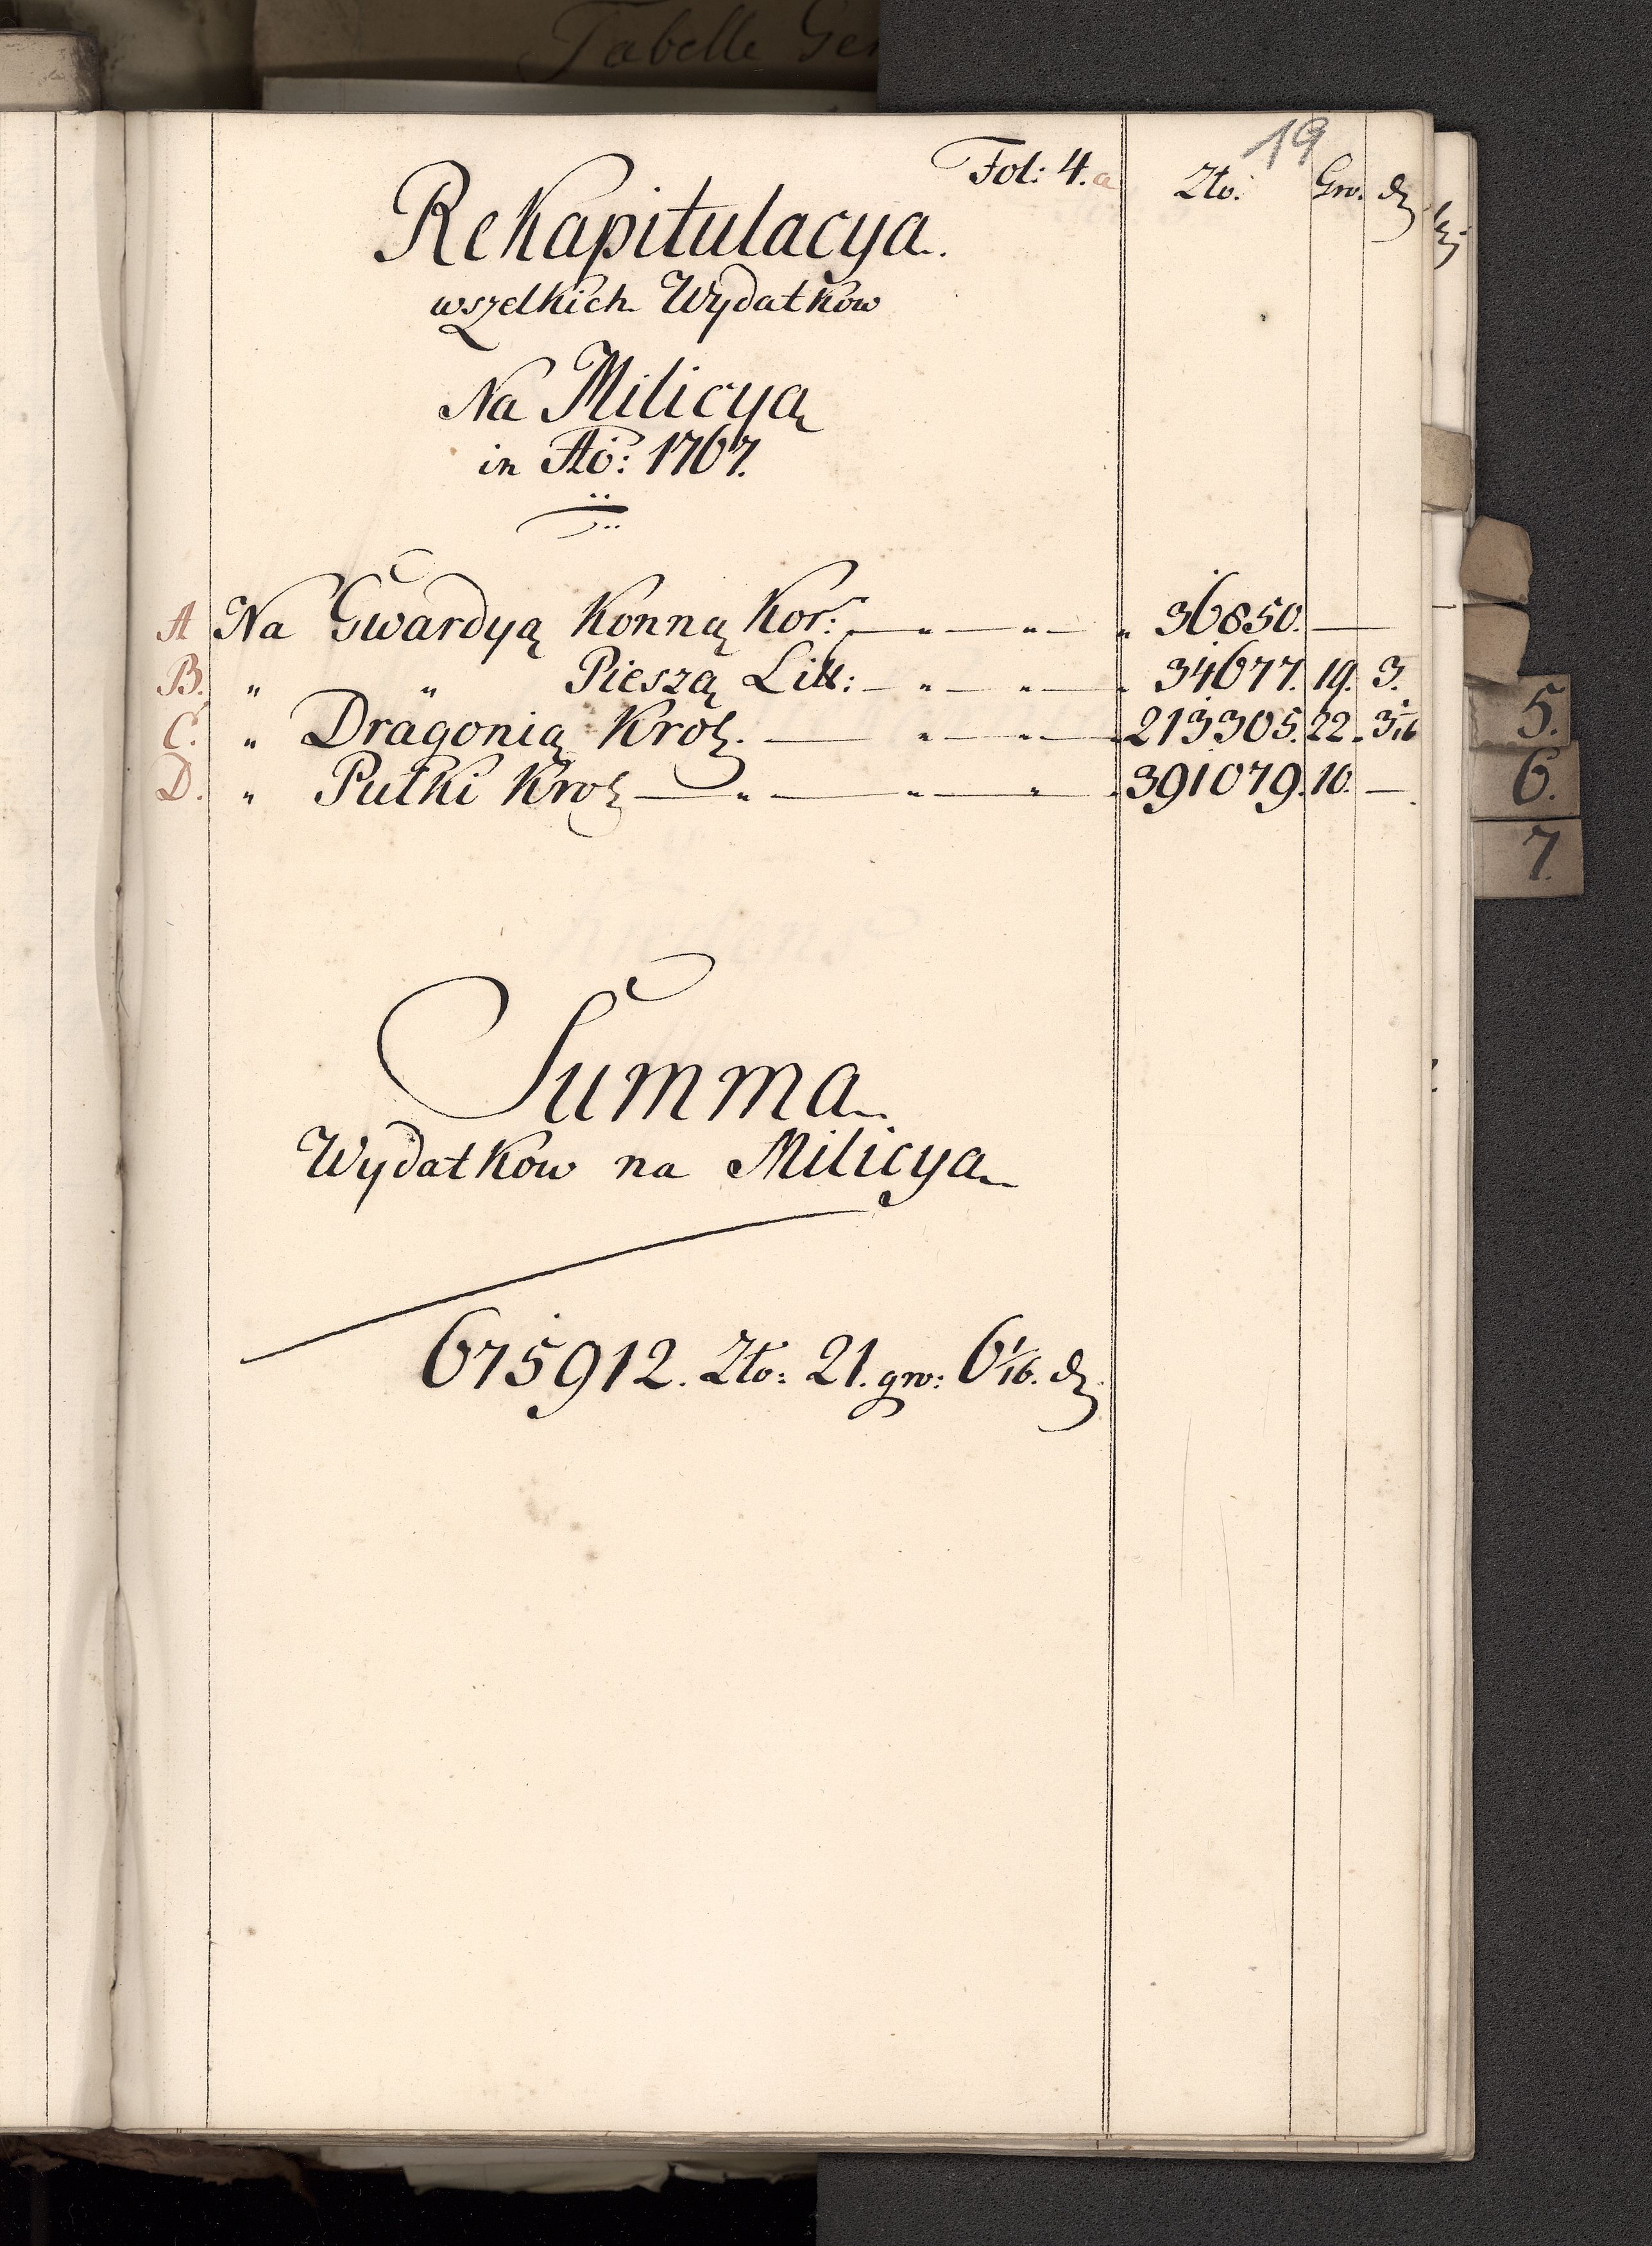 Tabelle Gen
19
Fol: 4. a
Zło: Gro. d
Rekapitulacya.
wszelkich Wydatkow
Na Milicyą
in Ao: 1767.
A Na Gwardyą Konną Kor: — „ — „ — „ 36850. —
B. „ „ Pieszą Litt: — „ — „ — „ 34677. 19. 3.
C. „ Dragonią Krol. — „ — „ — „ 213305. 22. 3 1/16
D. „ Pułki Krol — „ — „ — „ — 391079. 10. —
5.
6.
7.
Summa
Wydatkow na Milicya
675912. Zło: 21. gro: 6 1/16. d